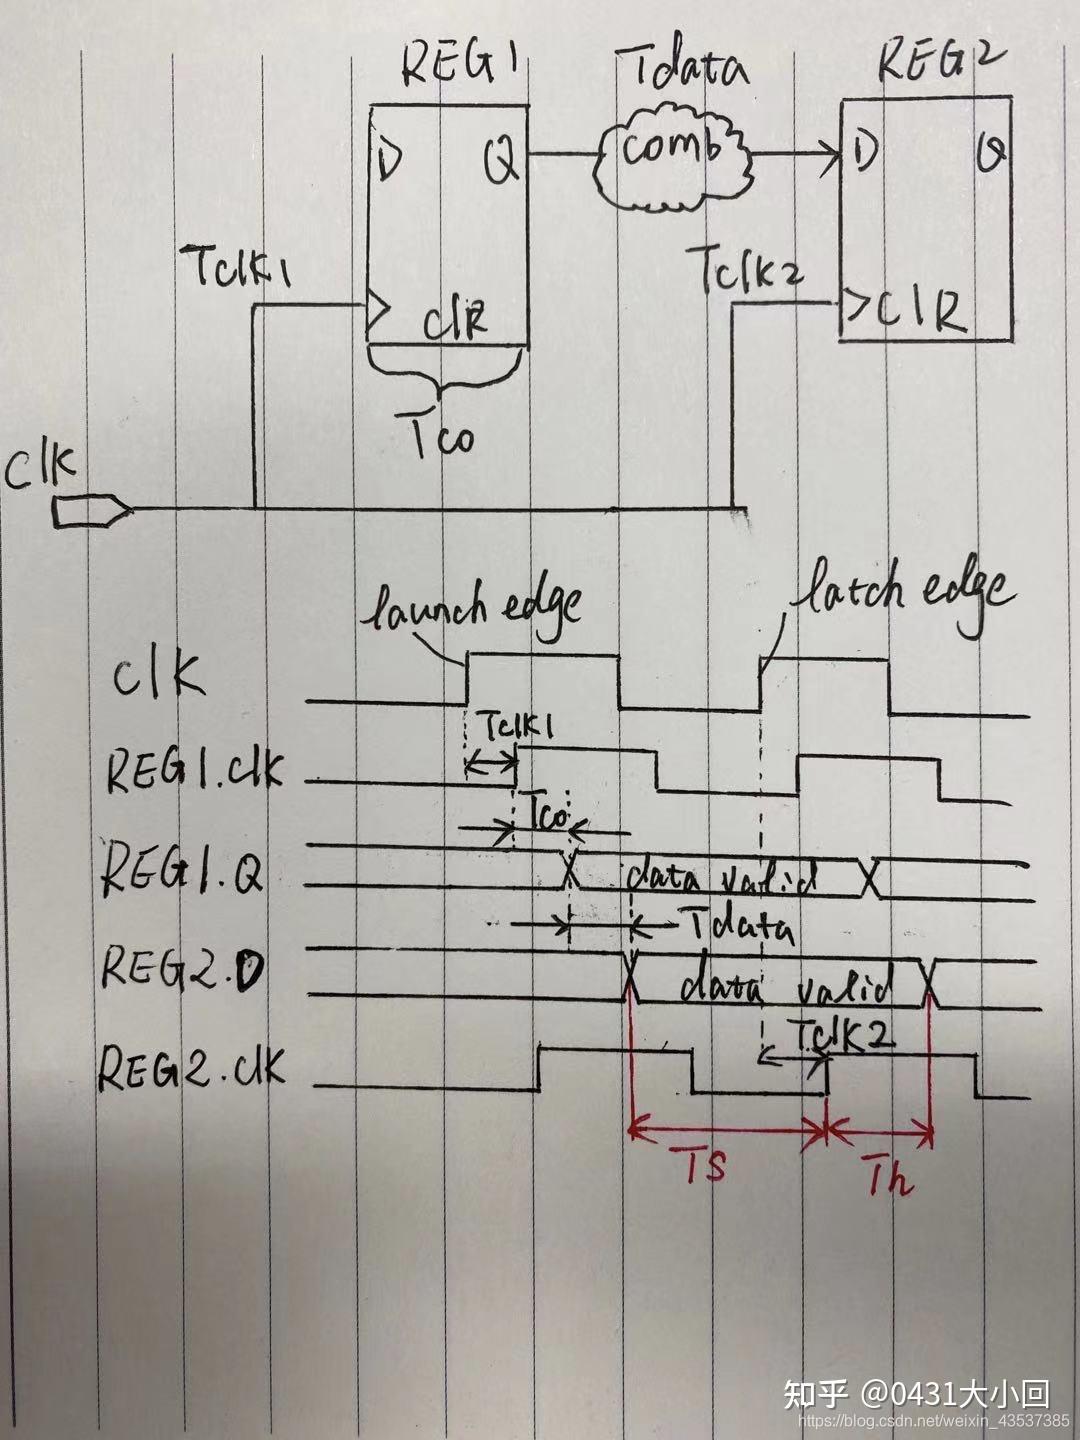 REG1 Tdata REG2
D Q comb D Q
Tclk1 Tclk2
clR clR
Tco
clk
launch edge latch edge
clk
Tclk1
REG1.clk
Tco
REG1.Q data valid
Tdata
REG2.D data valid
Tclk2
REG2.clk
Ts Th
知乎 @0431大小回
https://blog.csdn.net/weixin_43537385